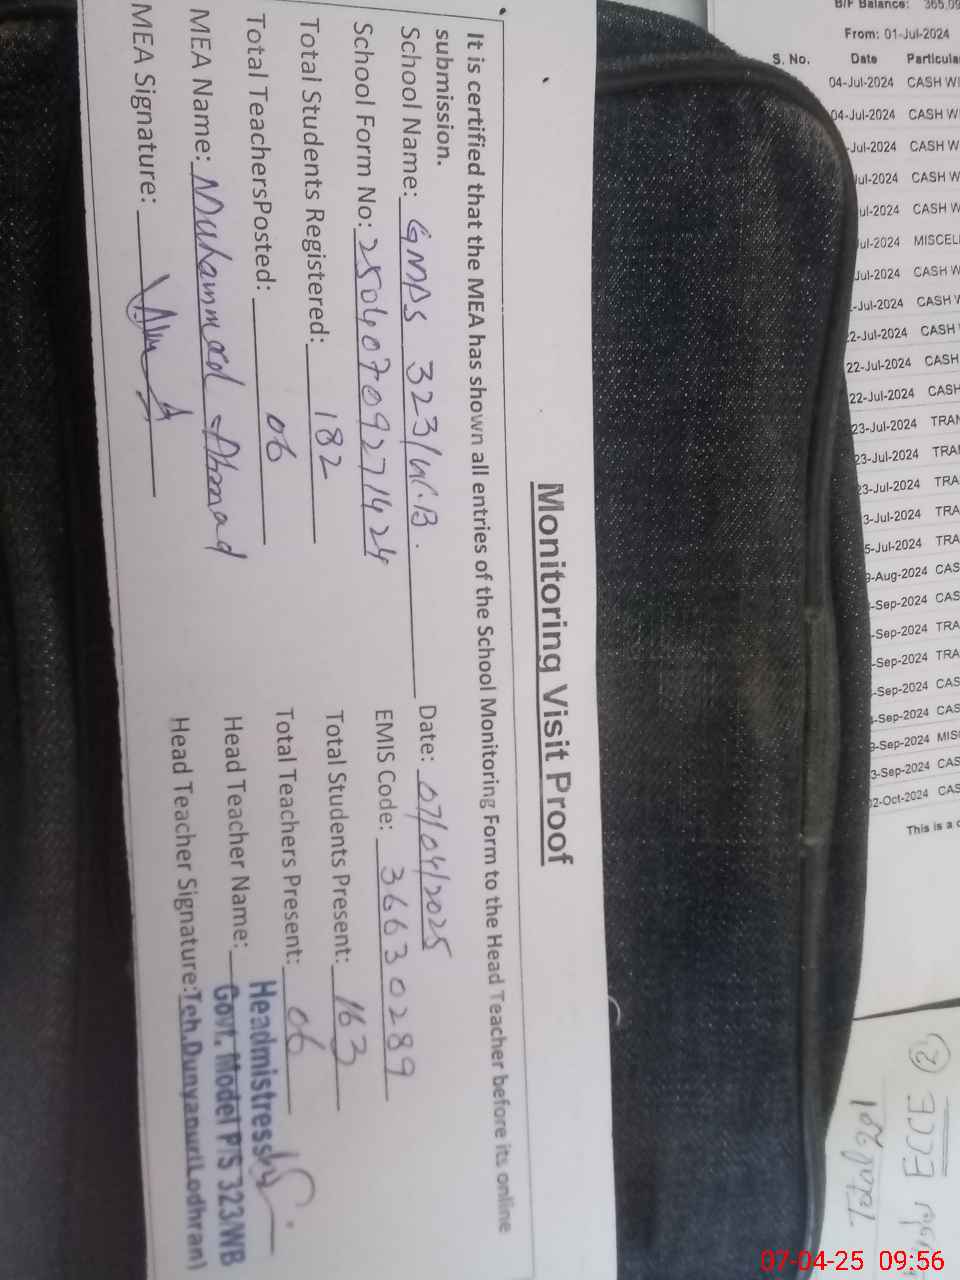 Monitoring Visit Proof
It is certified that the MEA has shown all entries of the School Monitoring Form to the Head Teacher before its online
submission.
School Name: GMPS 323/W.B.
Date: 07/04/2025
School Form No: 25040709271424
EMIS Code: 36630289
Total Students Registered: 182
Total Students Present: 163
Total TeachersPosted: 06
Total Teachers Present: 06
MEA Name: Muhammad Ahmad
Head Teacher Name:
MEA Signature:
Head Teacher Signature:
Headmistress
Govt. Model P/S 323/WB
Teh.Dunyapur(Lodhran)
B/F Balance: 365,09
From: 01-Jul-2024
S. No. Date Particula
04-Jul-2024 CASH WI
04-Jul-2024 CASH W
-Jul-2024 CASH W
Jul-2024 CASH W
ul-2024 CASH W
ul-2024 MISCEL
Jul-2024 CASH W
-Jul-2024 CASH W
2-Jul-2024 CASH
22-Jul-2024 CASH
22-Jul-2024 CASH
23-Jul-2024 TRAN
23-Jul-2024 TRA
23-Jul-2024 TRA
3-Jul-2024 TRA
5-Jul-2024 TRA
-Aug-2024 CAS
-Sep-2024 CAS
-Sep-2024 TRA
-Sep-2024 TRA
-Sep-2024 CAS
-Sep-2024 CAS
-Sep-2024 MIS
3-Sep-2024 CAS
02-Oct-2024 CAS
This is a
② ECCE
07-04-25 09:56